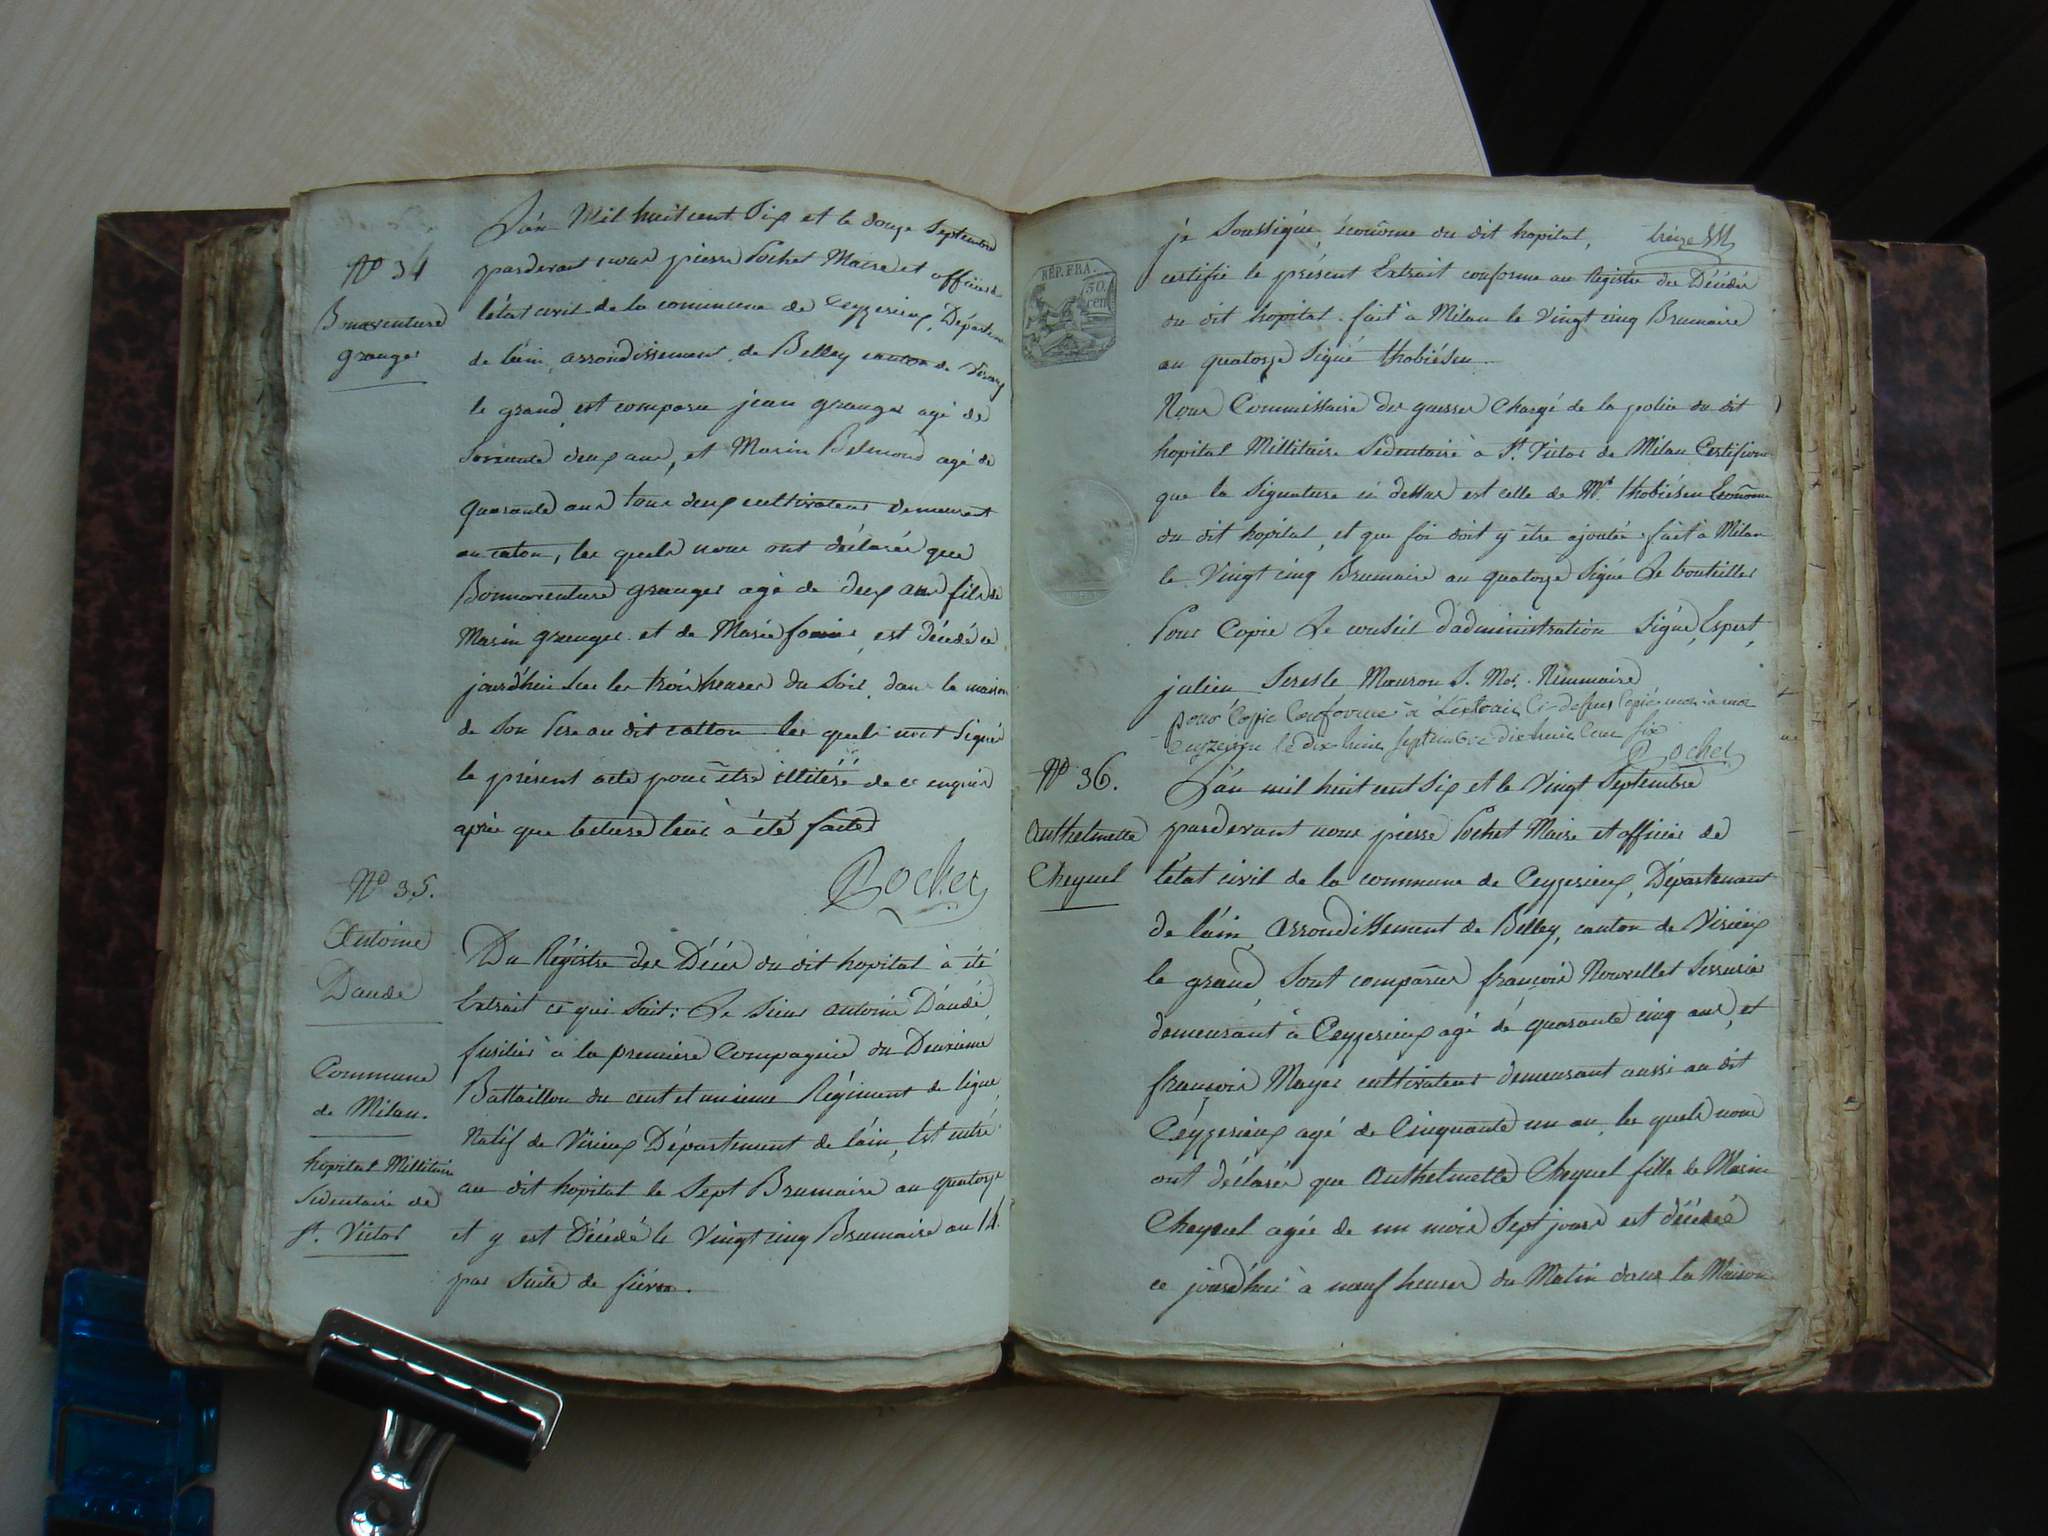 N° 34
Bonaventure
granger
L'an Mil huit cent Six et le douze Septembre
pardevant nous pierre Pochet Maire et officier de
l'état civil de la commune de Ceyzerieux, Départem
de l'ain, arrondissement de Belley canton de Virieux
le grand, est comparu jean granger agé de
Soixante deux ans, et Marin Belmond agé de
quarante ans tous deux cultivateurs demeurant
au caton, les quels nous ont déclarés que
Bonnaventure granger agé de deux ans fils de
Marin granger et de Marie, est décédé ce
jourd'hui sur les trois heures du Soir, dans la maison
de Son Pere au dit catton les quels n'ont Signé
le présent acte pour être illitéré de ce enquis
après que lecture leur à été faite
Pochet
N° 35.
Antoine
Daude
Commune
de Milan.
hopital Millitaire
Sédentaire de
St. Victor
Du Régistre des Décès du dit hopital à été
Extrait ce qui Suit: Le Sieur antoine Daudé,
fusilier à la premiere Compagnie du Deuxieme
Battaillon du cent et unieme Régiment de ligne,
Natif de Virieux Département de l'ain, Est entré
au dit hopital le Sept Brumaire an quatorze
et y est Décédé le Vingt cinq Brumaire an 14.
par Suite de fiévre.
REP. FRA.
50.
cen
je Soussigné, économe du dit hopital, treize
certifie le présent Extrait conforme au Régistre des Décédés
du dit hopital. fait à Milan le Vingt cinq Brumaire
an quatorze Signé thobiésen
Nous Commissaire des guerres Chargé de la police du dit
hopital Millitaire Sédentaire à St. Victor de Milan Certifions
que la Signature ci dessus est celle de Mr. thobiésen Econôme
du dit hopital, et que foi doit y être ajoutée. fait à Milan
le Vingt cinq Brumaire an quatorze Signé Le bouteiller
Pour Copie Le conseil d'administration Signé, Espert,
julien Mouron
pour Coppie Conforme à L'extrait Ci dessus Copié mot à mot
Ceyzerieu le dix huit Septembre dix huit Cent Six
Pochet
N° 36.
Anthelmette
Cheynel
L'an mil huit cent Six et le Vingt Septembre
pardevant nous pierre Pochet Maire et officier de
l'état civil de la commune de Ceyzerieux, Département
de l'ain, Arrondissement de Belley, canton de Virieux
le grand, Sont comparus françois Nouvellet Serrurier
demeurant à Ceyzerieux agé de quarante cinq ans, et
françois Mayer cultivateur demeurant aussi au dit
Ceyzerieux agé de Cinquante un an, les quels nous
ont déclarés que Anthelmette Cheynel fille de Marin
Cheynel agée de un mois Sept jours est décédée
ce jourd'hui à neuf heures du Matin dans la Maison